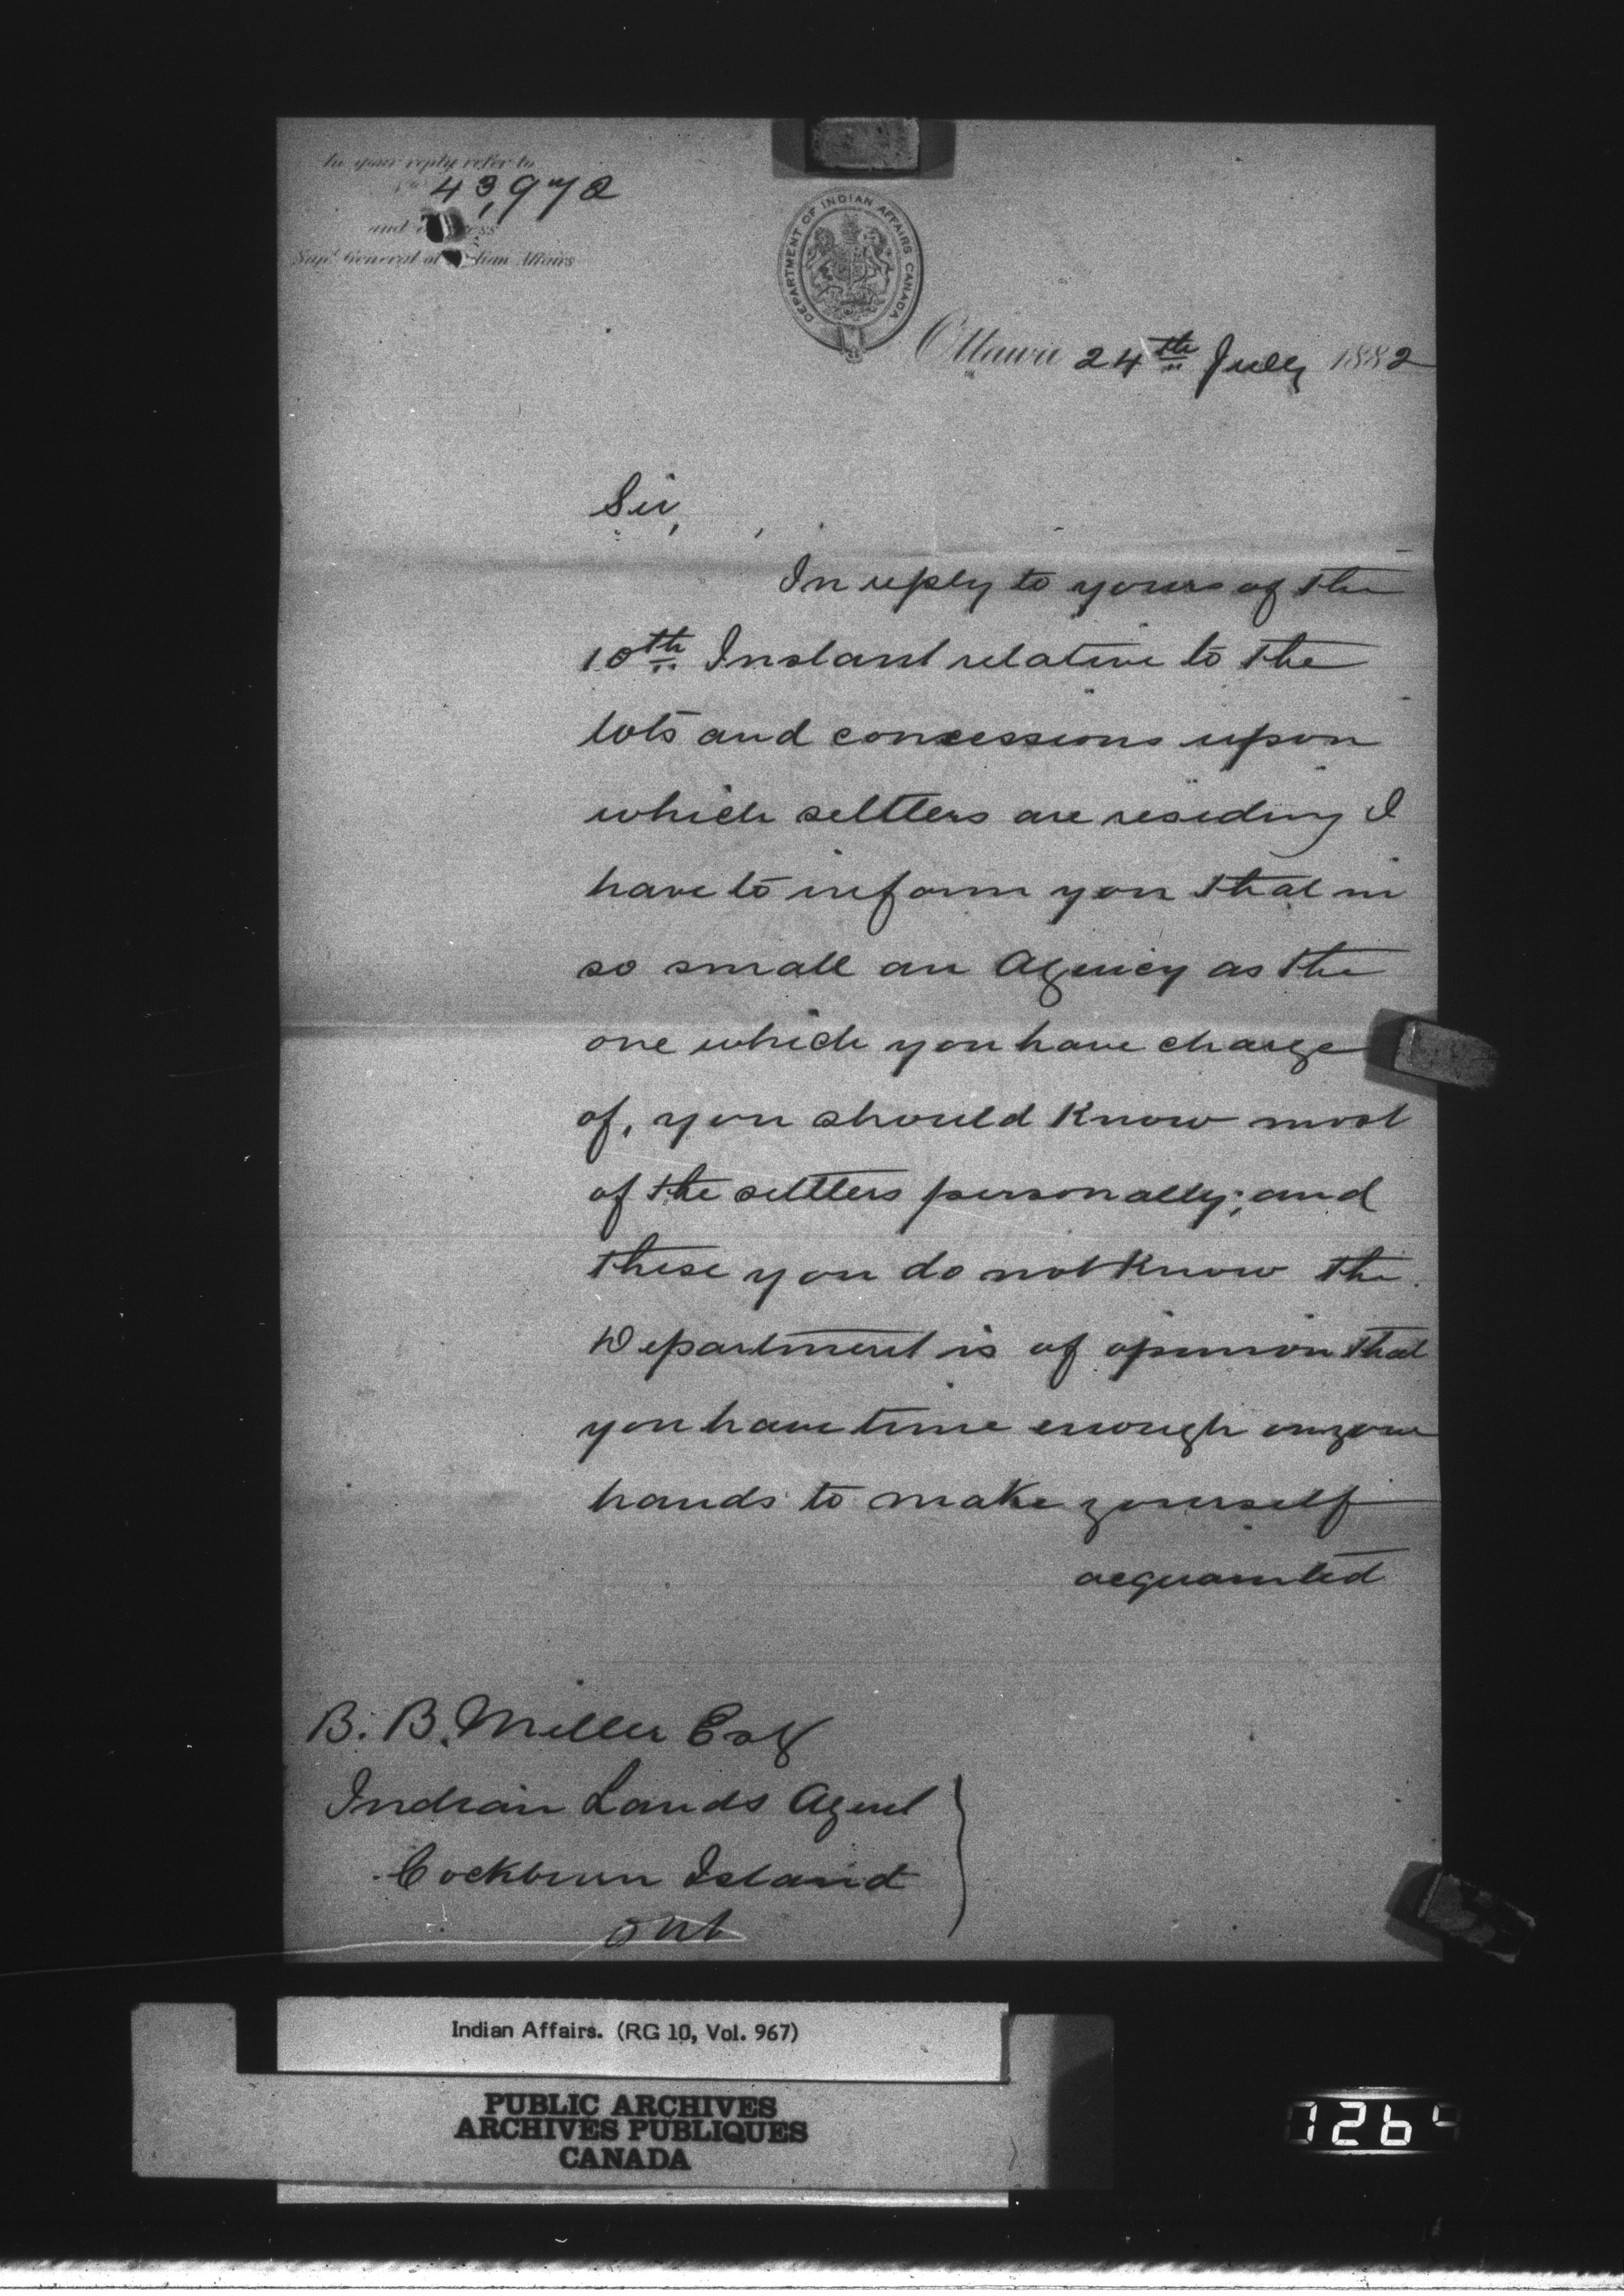 In your reply refer to
No 43,972
and address
Supt General of Indian Affairs
DEPARTMENT OF INDIAN AFFAIRS CANADA
Ottawa 24th July 1882
Sir,
In reply to yours of the
10th Instant relative to the
lots and concessions upon
which settlers are residing I
have to inform you that in
so small an Agency as the
one which you have charge
of, you should know most
of the settlers personally; and
these you do not know the
Department is of opinion that
you have time enough on your
hands to make yourself
acquainted
B. B. Miller Esq
Indian Lands Agent
Cockburn Island
Ont
Indian Affairs. (RG 10, Vol. 967)
PUBLIC ARCHIVES
ARCHIVES PUBLIQUES
CANADA
1264